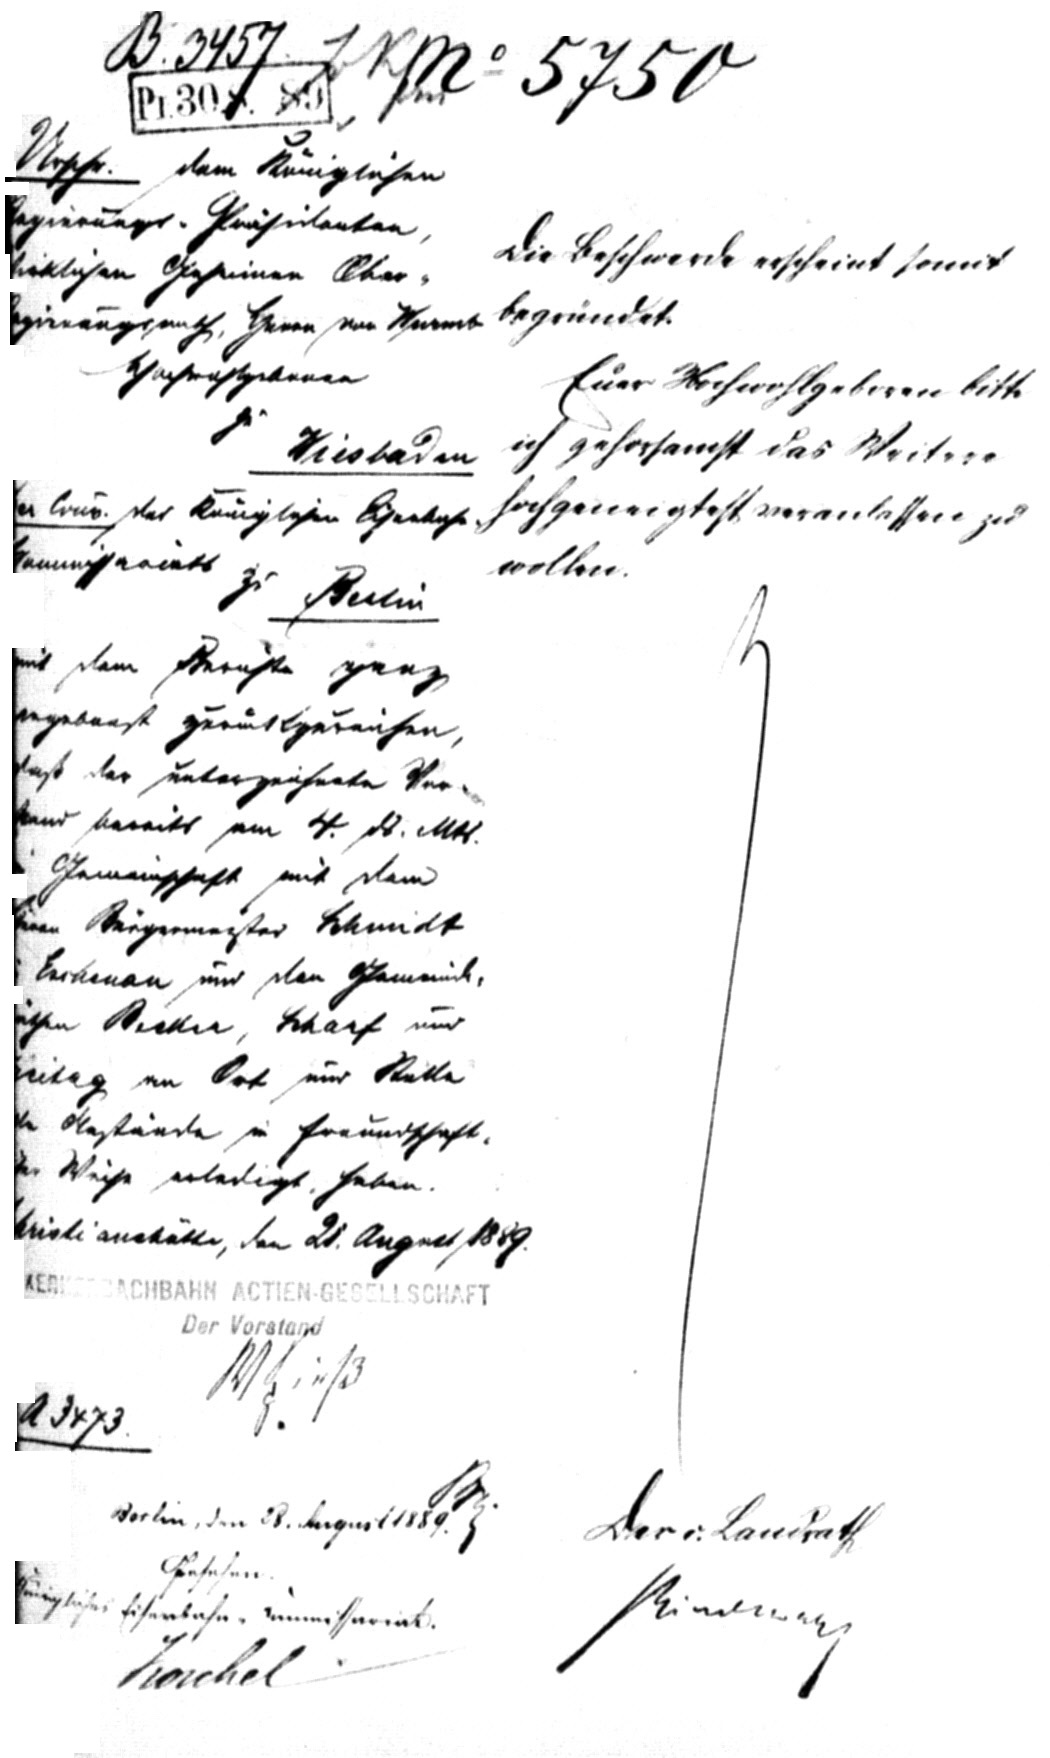 B. 3457.
No 5750
Pr. 30. 8. 89
Urschr. dem Königlichen
Regierungs-Präsidenten,
Wirklichen Geheimen Ober-
Regierungsrath, Herrn von Wurmb
Hochwohlgeboren
zu
Wiesbaden
per Couv. des Königlichen Eisenbahn-
Kommissariats
zu Berlin
mit dem Berichte ganz
ergebenst zurückzureichen,
daß der unterzeichnete Vor-
stand bereits am 4. ds. Mts.
Gemeinschaft mit dem
Herrn Bürgermeister Schmidt
Eschenau und den Gemeinde-
räthen Becker, Scharf und
Freitag an Ort und Stelle
die Anstände in freundschaft-
licher Weise erledigt haben.
Christianshütte, den 21. August 1889.
KERKERBACHBAHN ACTIEN-GESELLSCHAFT
Der Vorstand
A 3473.
Berlin, den 28. August 1889.
Gesehen.
Königliches Eisenbahn-Kommissariat.
Koschel
Die Beschwerde erscheint somit
begründet.
Euer Hochwohlgeboren bitte
ich gehorsamst das Weitere
hochgeneigtest veranlassen zu
wollen.
Der v. Landrath